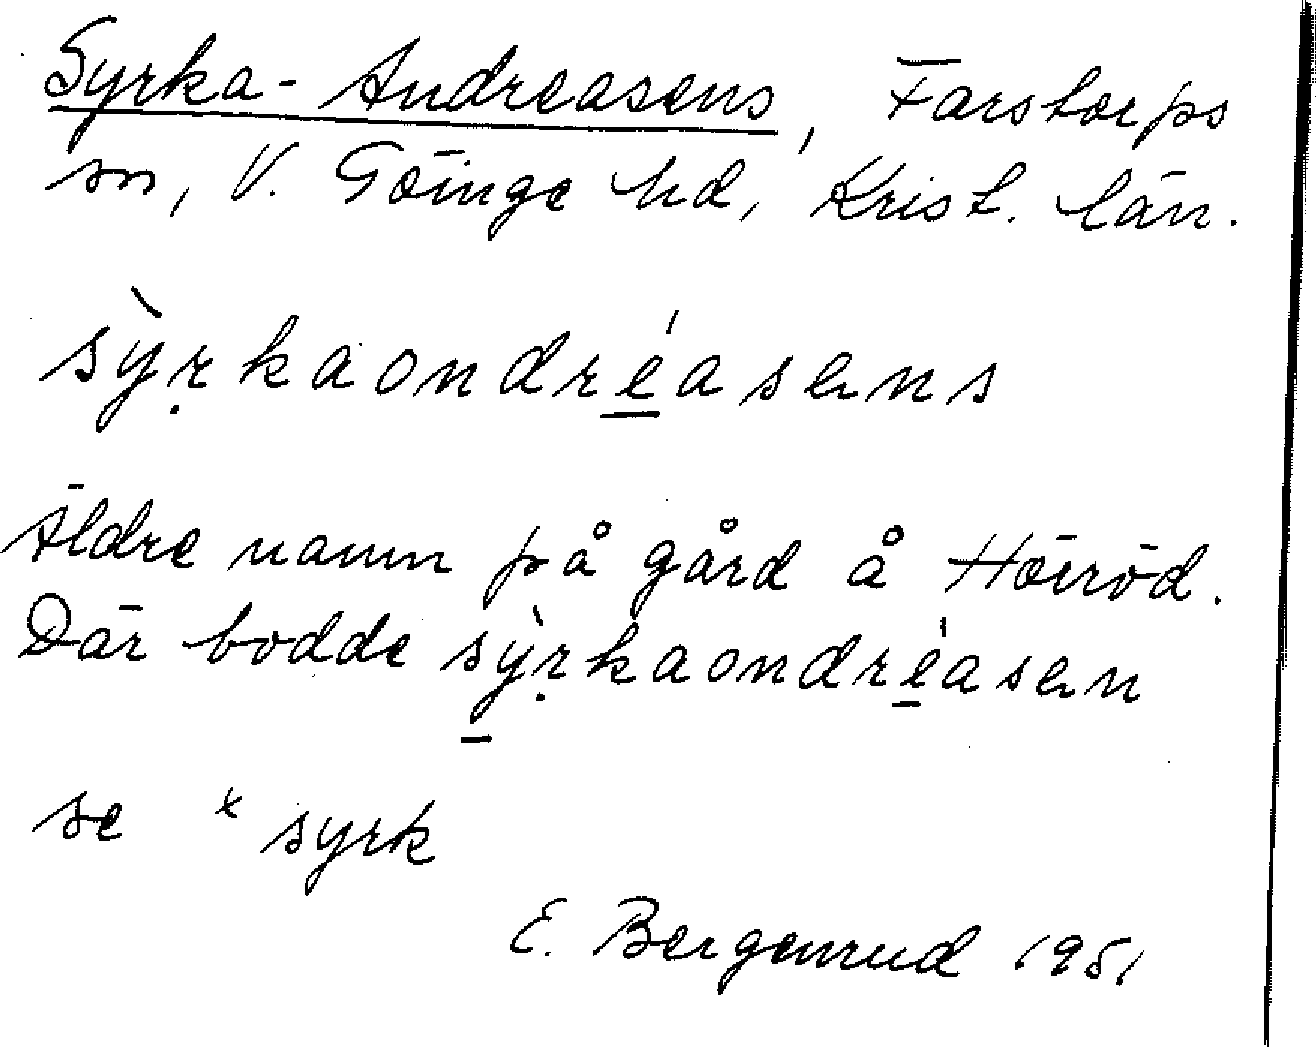 Syrka-Andreasens, Farstorps
sn, V. Göinge hd, Krist. län.
sỳṛkaondréasens
Äldre namn på gård å Höiröd.
Där bodde sỳṛkaondréasen
se * syrk
E. Bergenrud 1951